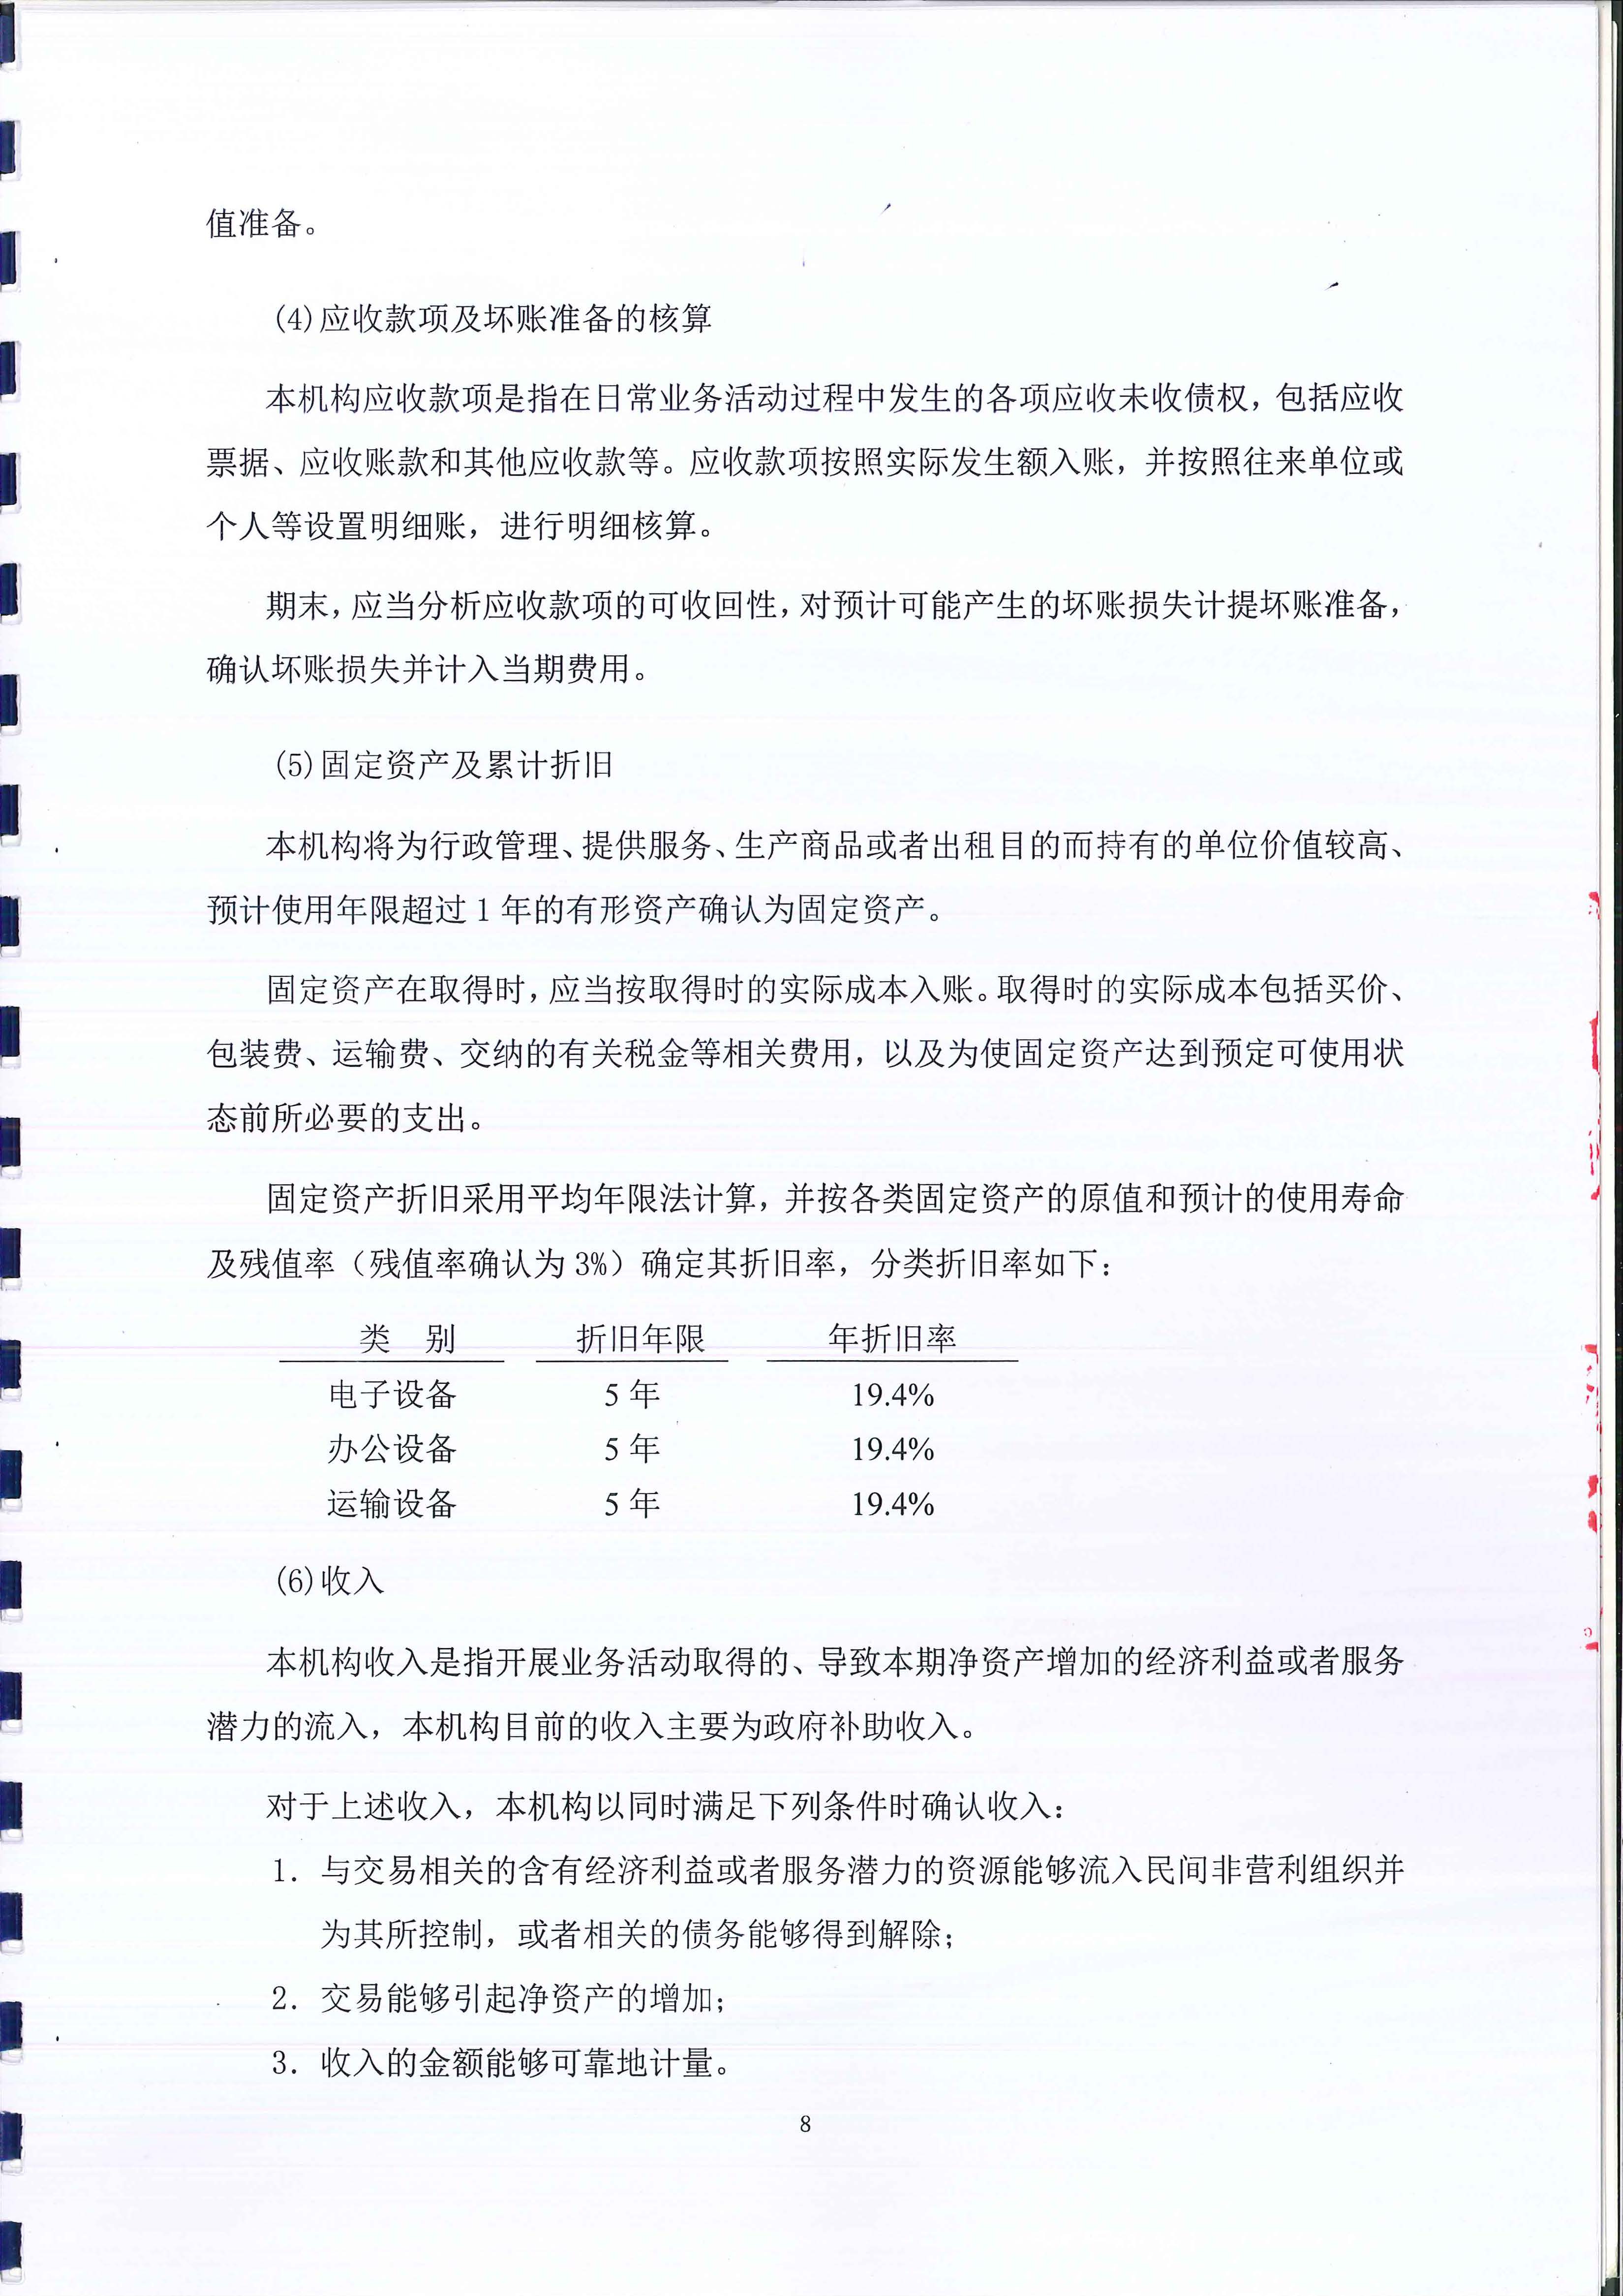 值准备。
(4)应收款项及坏账准备的核算
本机构应收款项是指在日常业务活动过程中发生的各项应收未收债权，包括应收
票据、应收账款和其他应收款等。应收款项按照实际发生额入账，并按照往来单位或
个人等设置明细账，进行明细核算。
期末，应当分析应收款项的可收回性，对预计可能产生的坏账损失计提坏账准备，
确认坏账损失并计入当期费用。
(5)固定资产及累计折旧
本机构将为行政管理、提供服务、生产商品或者出租目的而持有的单位价值较高、
预计使用年限超过 1 年的有形资产确认为固定资产。
固定资产在取得时，应当按取得时的实际成本入账。取得时的实际成本包括买价、
包装费、运输费、交纳的有关税金等相关费用，以及为使固定资产达到预定可使用状
态前所必要的支出。
固定资产折旧采用平均年限法计算，并按各类固定资产的原值和预计的使用寿命
及残值率（残值率确认为 3%）确定其折旧率，分类折旧率如下：
类 别 折旧年限 年折旧率
电子设备 5 年 19.4%
办公设备 5 年 19.4%
运输设备 5 年 19.4%
(6)收入
本机构收入是指开展业务活动取得的、导致本期净资产增加的经济利益或者服务
潜力的流入，本机构目前的收入主要为政府补助收入。
对于上述收入，本机构以同时满足下列条件时确认收入：
1. 与交易相关的含有经济利益或者服务潜力的资源能够流入民间非营利组织并
为其所控制，或者相关的债务能够得到解除；
2. 交易能够引起净资产的增加；
3. 收入的金额能够可靠地计量。
8